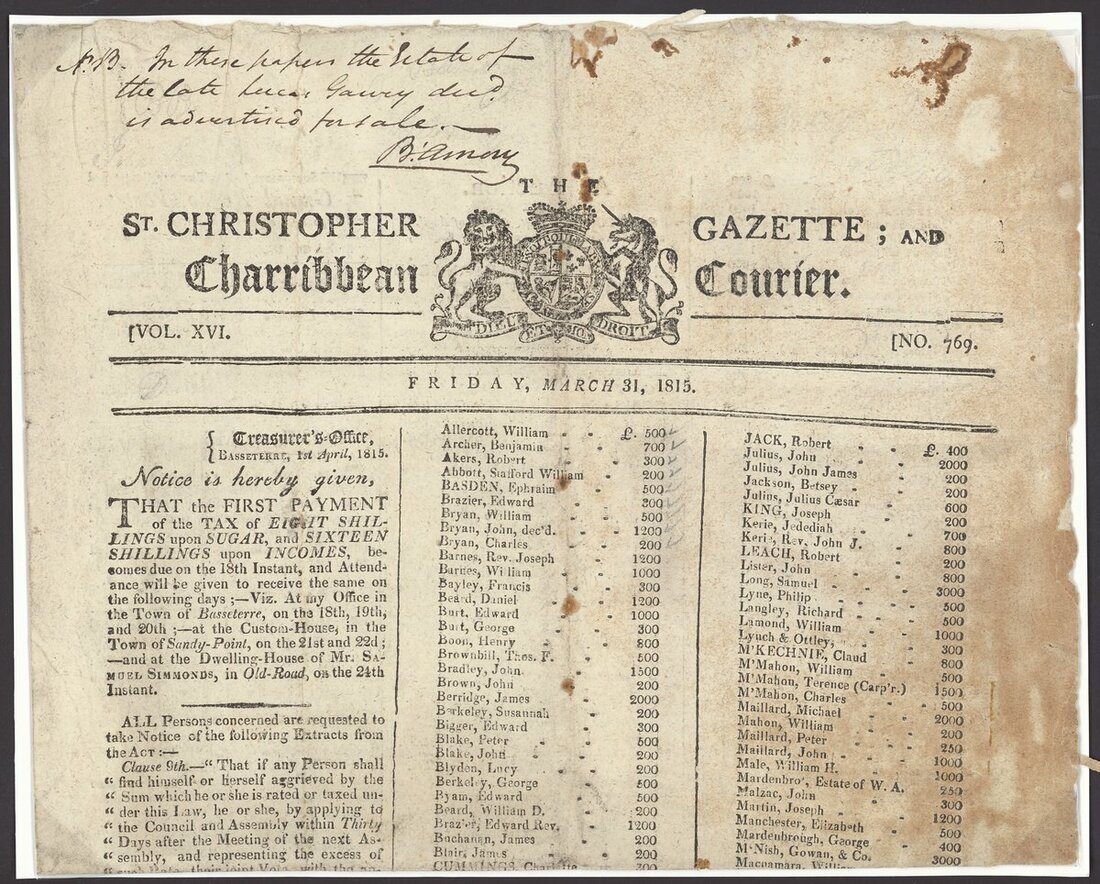 N.B. In these papers the Estate of
the late Lucas Gawry decd.
is advertised for sale.
B. Amory
THE
ST. CHRISTOPHER GAZETTE; AND
Charribbean Courier.
DIEU ET MON DROIT
[VOL. XVI. [NO. 769.
FRIDAY, MARCH 31, 1815.
Treasurer's-Office,
BASSETERRE, 1st April, 1815.
Notice is hereby given,
THAT the FIRST PAYMENT
of the TAX of EIGHT SHIL-
LINGS upon SUGAR, and SIXTEEN
SHILLINGS upon INCOMES, be-
comes due on the 18th Instant, and Attend-
ance will be given to receive the same on
the following days;—Viz. At my Office in
the Town of Basseterre, on the 18th, 19th,
and 20th;—at the Custom-House, in the
Town of Sandy-Point, on the 21st and 22d;
—and at the Dwelling-House of Mr. SA-
MUEL SIMMONDS, in Old-Road, on the 24th
Instant.
ALL Persons concerned are requested to
take Notice of the following Extracts from
the ACT:—
Clause 9th.—"That if any Person shall
"find himself or herself aggrieved by the
"Sum which he or she is rated or taxed un-
"der this Law, he or she, by applying to
"the Council and Assembly within Thirty
"Days after the Meeting of the next As-
"sembly, and representing the excess of
"such Rate, their joint Vote, with the ap-
Allercott, William £. 500
Archer, Benjamin 700
Akers, Robert 300
Abbott, Stafford William 200
BASDEN, Ephraim 500
Brazier, Edward 300
Bryan, William 500
Bryan, John, dec'd. 1200
Bryan, Charles 200
Barnes, Rev. Joseph 1200
Barnes, William 1000
Bayley, Francis 300
Beard, Daniel 1200
Burt, Edward 1000
Burt, George 300
Boon, Henry 800
Brownbill, Thos. F. 500
Bradley, John 1500
Brown, John 200
Berridge, James 2000
Berkeley, Susannah 200
Bigger, Edward 300
Blake, Peter 500
Blake, John 200
Blyden, Lucy 200
Berkeley, George 500
Byam, Edward 500
Beard, William D. 200
Brazier, Edward Rev. 1200
Buchanan, James 200
Blair, James 200
CUMMINGS, Charlotte 300
JACK, Robert £. 400
Julius, John 2000
Julius, John James 200
Jackson, Betsey 200
Julius, Julius Cæsar 600
KING, Joseph 200
Kerie, Jedediah 700
Kerie, Rev. John J. 800
LEACH, Robert 200
Lister, John 800
Long, Samuel 3000
Lyne, Philip 500
Langley, Richard 500
Lamond, William 1000
Lynch & Ottley, 300
M'KECHNIE, Claud 800
M'Mahon, William 500
M'Mahon, Terence (Carp'r.) 1500
M'Mahon, Charles 500
Maillard, Michael 2000
Mahon, William 200
Maillard, Peter 250
Maillard, John 1000
Male, William H. 1000
Mardenbro', Estate of W. A. 250
Malzac, John 300
Martin, Joseph 1200
Manchester, Elizabeth 500
Mardenbrough, George 400
M'Nish, Gowan, & Co. 3000
Macnamara, William